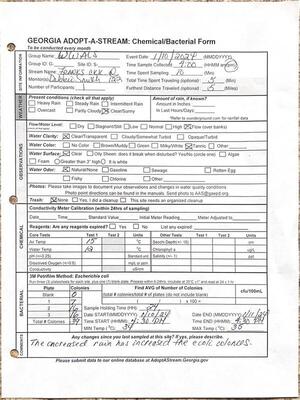 GEORGIA ADOPT-A-STREAM: Chemical/Bacterial Form
To be conducted every month
Group Name WWALS Event Date 1/10/2024 (MMDDYYYY)
Group ID: G- Site ID: S- Time Sample Collected 4:00 (HHMM am/pm)
Stream Name Time Spent Sampling 10 (Min)
Monitors Total Time Spent Traveling (optional) (Min)
Number of Participants 1 Furthest Distance Traveled (optional) 5 (Miles)
SITE INFORMATION
WEATHER
Present conditions (check all that apply) Amount of rain, if known?
Heavy Rain Steady Rain Intermittent Rain Amount in Inches
Overcast Partly Cloudy Clear/Sunny In Last Hours/Days
*Refer to wunderground.com for rainfall data
OBSERVATIONS
Flow/Water Level: Dry Stagnant/Still Low Normal High Flow (over banks)
Water Clarity: Clear/Transparent Cloudy/Somewhat Turbid Opaque/Turbid
Water Color: No Color Brown/Muddy Green Milky/White Tannic Other
Water Surface: Clear Oily sheen: does it break when disturbed? Yes/No (circle one) Algae
Foam Greater than 3" high It is white
Water Odor: Natural/None Gasoline Sewage Rotten Egg
Fishy Chlorine Other
Photos: Please take images to document your observations and changes in water quality conditions
Photo point directions can be found in the manuals. Send photo to AAS@gaepd.org
Trash: None Yes, I did a cleanup This site needs an organized cleanup
CHEMICAL
Conductivity Meter Calibration (within 24hrs of sampling)
Date Time Standard Value Initial Meter Reading Meter Adjusted to
Reagents: Are any reagents expired? Yes No List any expired:
Core Tests Test 1 Test 2 Units Other Tests Test 1 Test 2 Units
Air Temp 15 °C Secchi Depth (+/-10) cm
Water Temp 12 °C Chlorophyll a
pH (+/-0.25) Standard unit Salinity (+/- 1) ppt
Dissolved Oxygen (+/-0.6) mg/L or ppm
Conductivity uS/cm
BACTERIAL
3M Petrifilm Method: Escherichia coli
Plate Colonies Find AVG of Number of Colonies cfu/100mL
Blank 0 (total # colonies/total # of plates (do not include blank)
1 7 / x 100 =
2 Sample Holding Time (HH)
3 16 START DATE (MMDDYY) END DATE (MMDDYY)
Total # Colonies 39 Time START (HHMM) 4:30 PM Time END (HHMM)
MIN Temp (°C) 34 MAX Temp (°C) 35
COMMENTS
Any changes since you last sampled at this site? If yes, please describe.
The increased rain has increased the ecoli colonies.
Please submit data to our online database at AdoptAStream.Georgia.gov